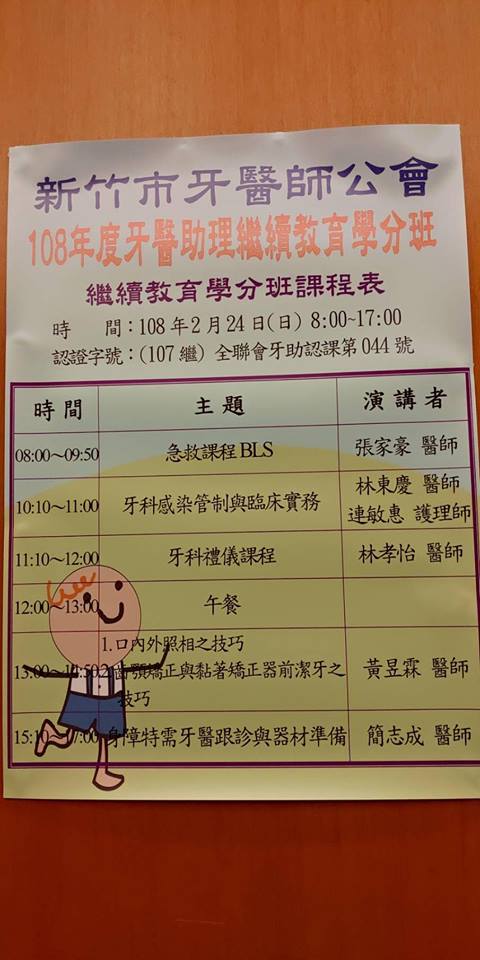 新竹市牙醫師公會
108年度牙醫助理繼續教育學分班
繼續教育學分班課程表
時 間：108 年 2 月 24 日(日) 8:00~17:00
認證字號：(107 繼) 全聯會牙助認課第 044 號
時 間 主 題 演 講 者
08:00～09:50 急救課程 BLS 張家豪 醫師
10:10～11:00 牙科感染管制與臨床實務 林東慶 醫師
連敏惠 護理師
11:10～12:00 牙科禮儀課程 林孝怡 醫師
12:00～13:00 午餐
1.口內外照相之技巧
13:00～ :50 2.齒顎矯正與黏著矯正器前潔牙之 黃昱霖 醫師
技巧
15:10～17:00 身障特需牙醫跟診與器材準備 簡志成 醫師